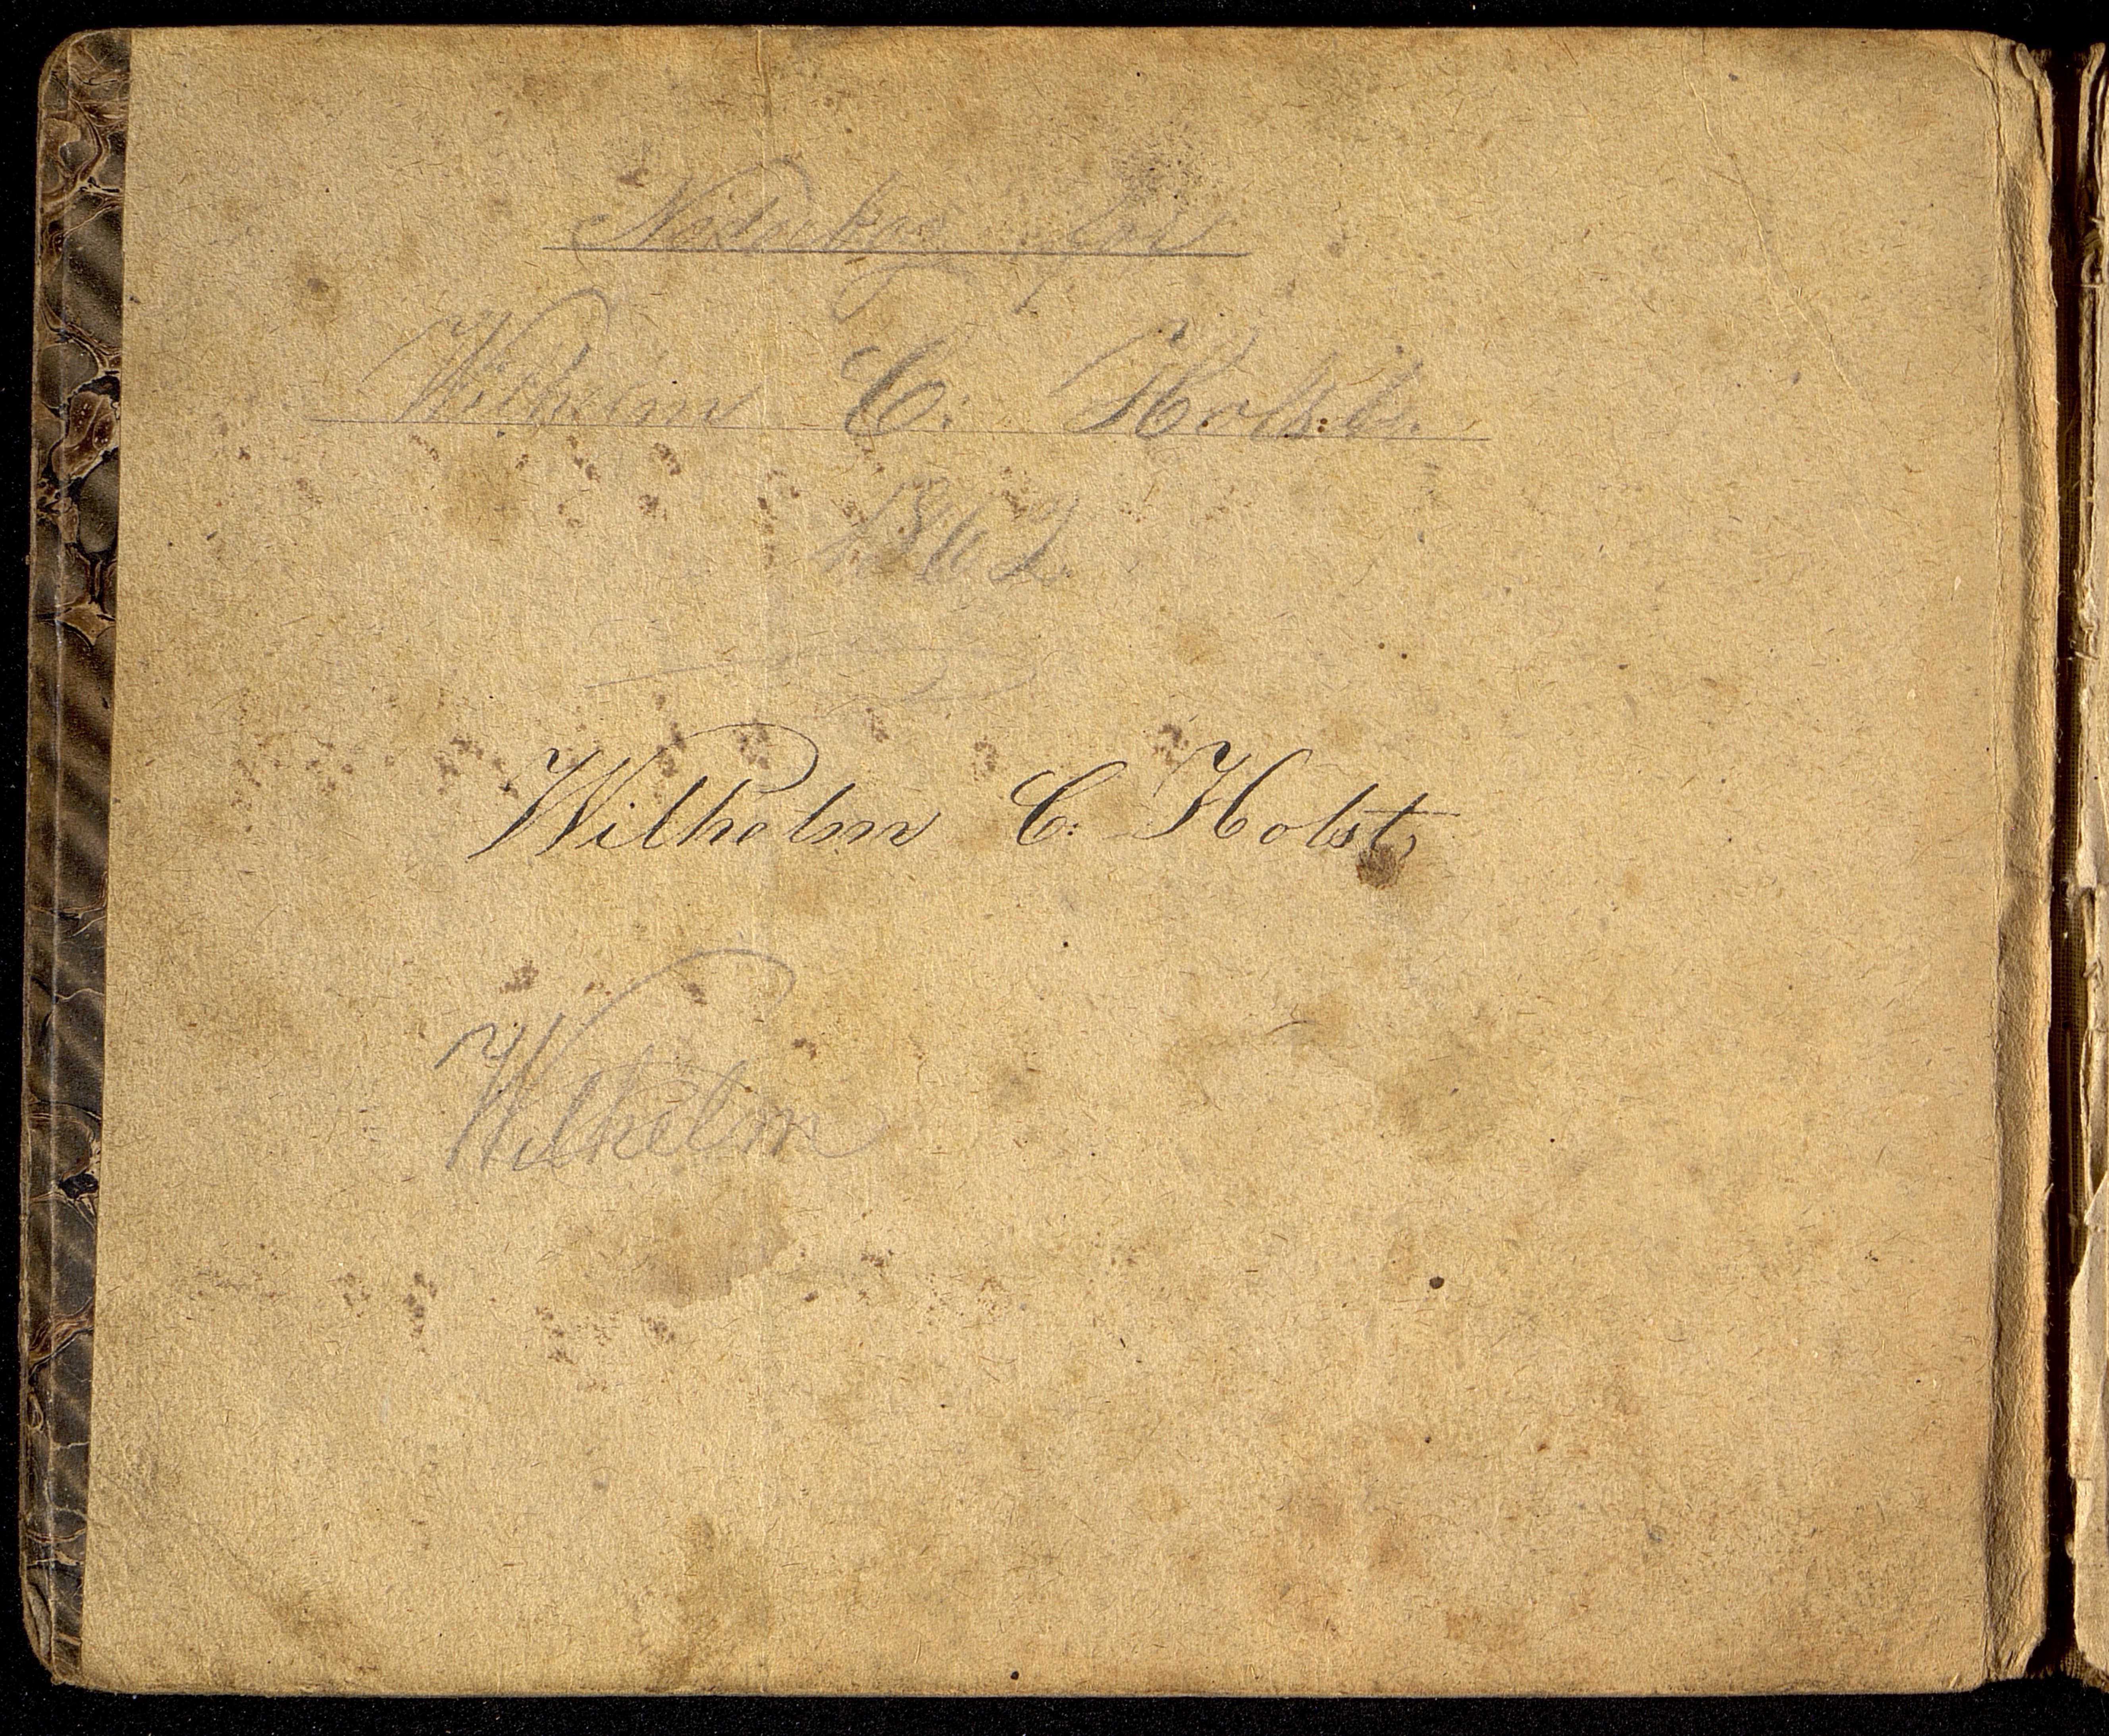 Nodebog for
Wilhelm C. Holst.
1862
Wilhelm C. Holst,
Wilhelm